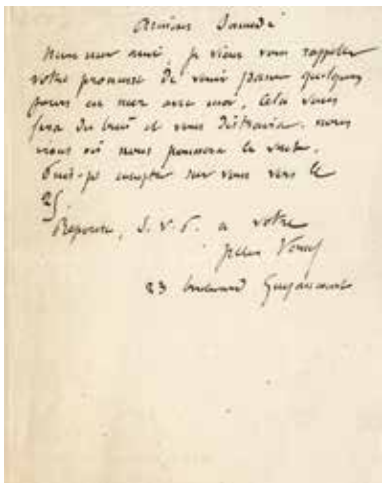 Amiens Samedi
Mon cher ami, je viens vous rappeler
votre promesse de venir passer quelques
jours en mer avec moi, Cela vous
fera du bien et vous distraira. nous
irons où nous poussera le vent.
Puis-je compter sur vous vers le
25.
Réponse, S.V.P. à votre
Jules Verne
23 boulevard Guyencourt